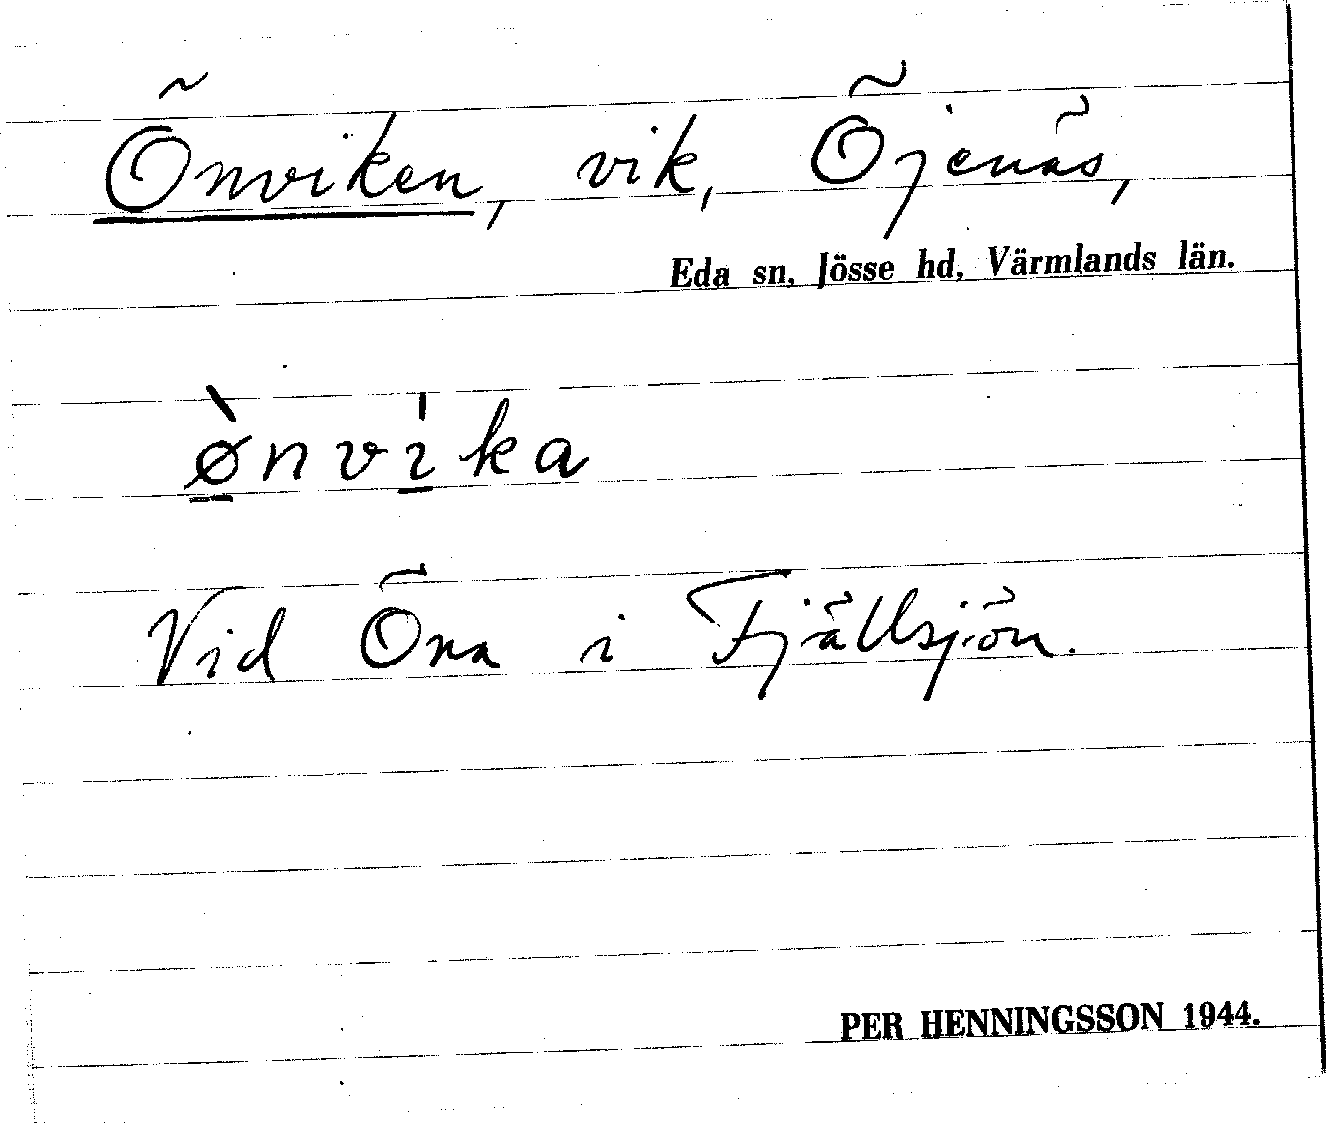 Önviken, vik, Öjenäs,
Eda sn, Jösse hd, Värmlands län.
ø̀nvi̍ka
Vid Öna i Fjällsjön.
PER HENNINGSSON 1944.